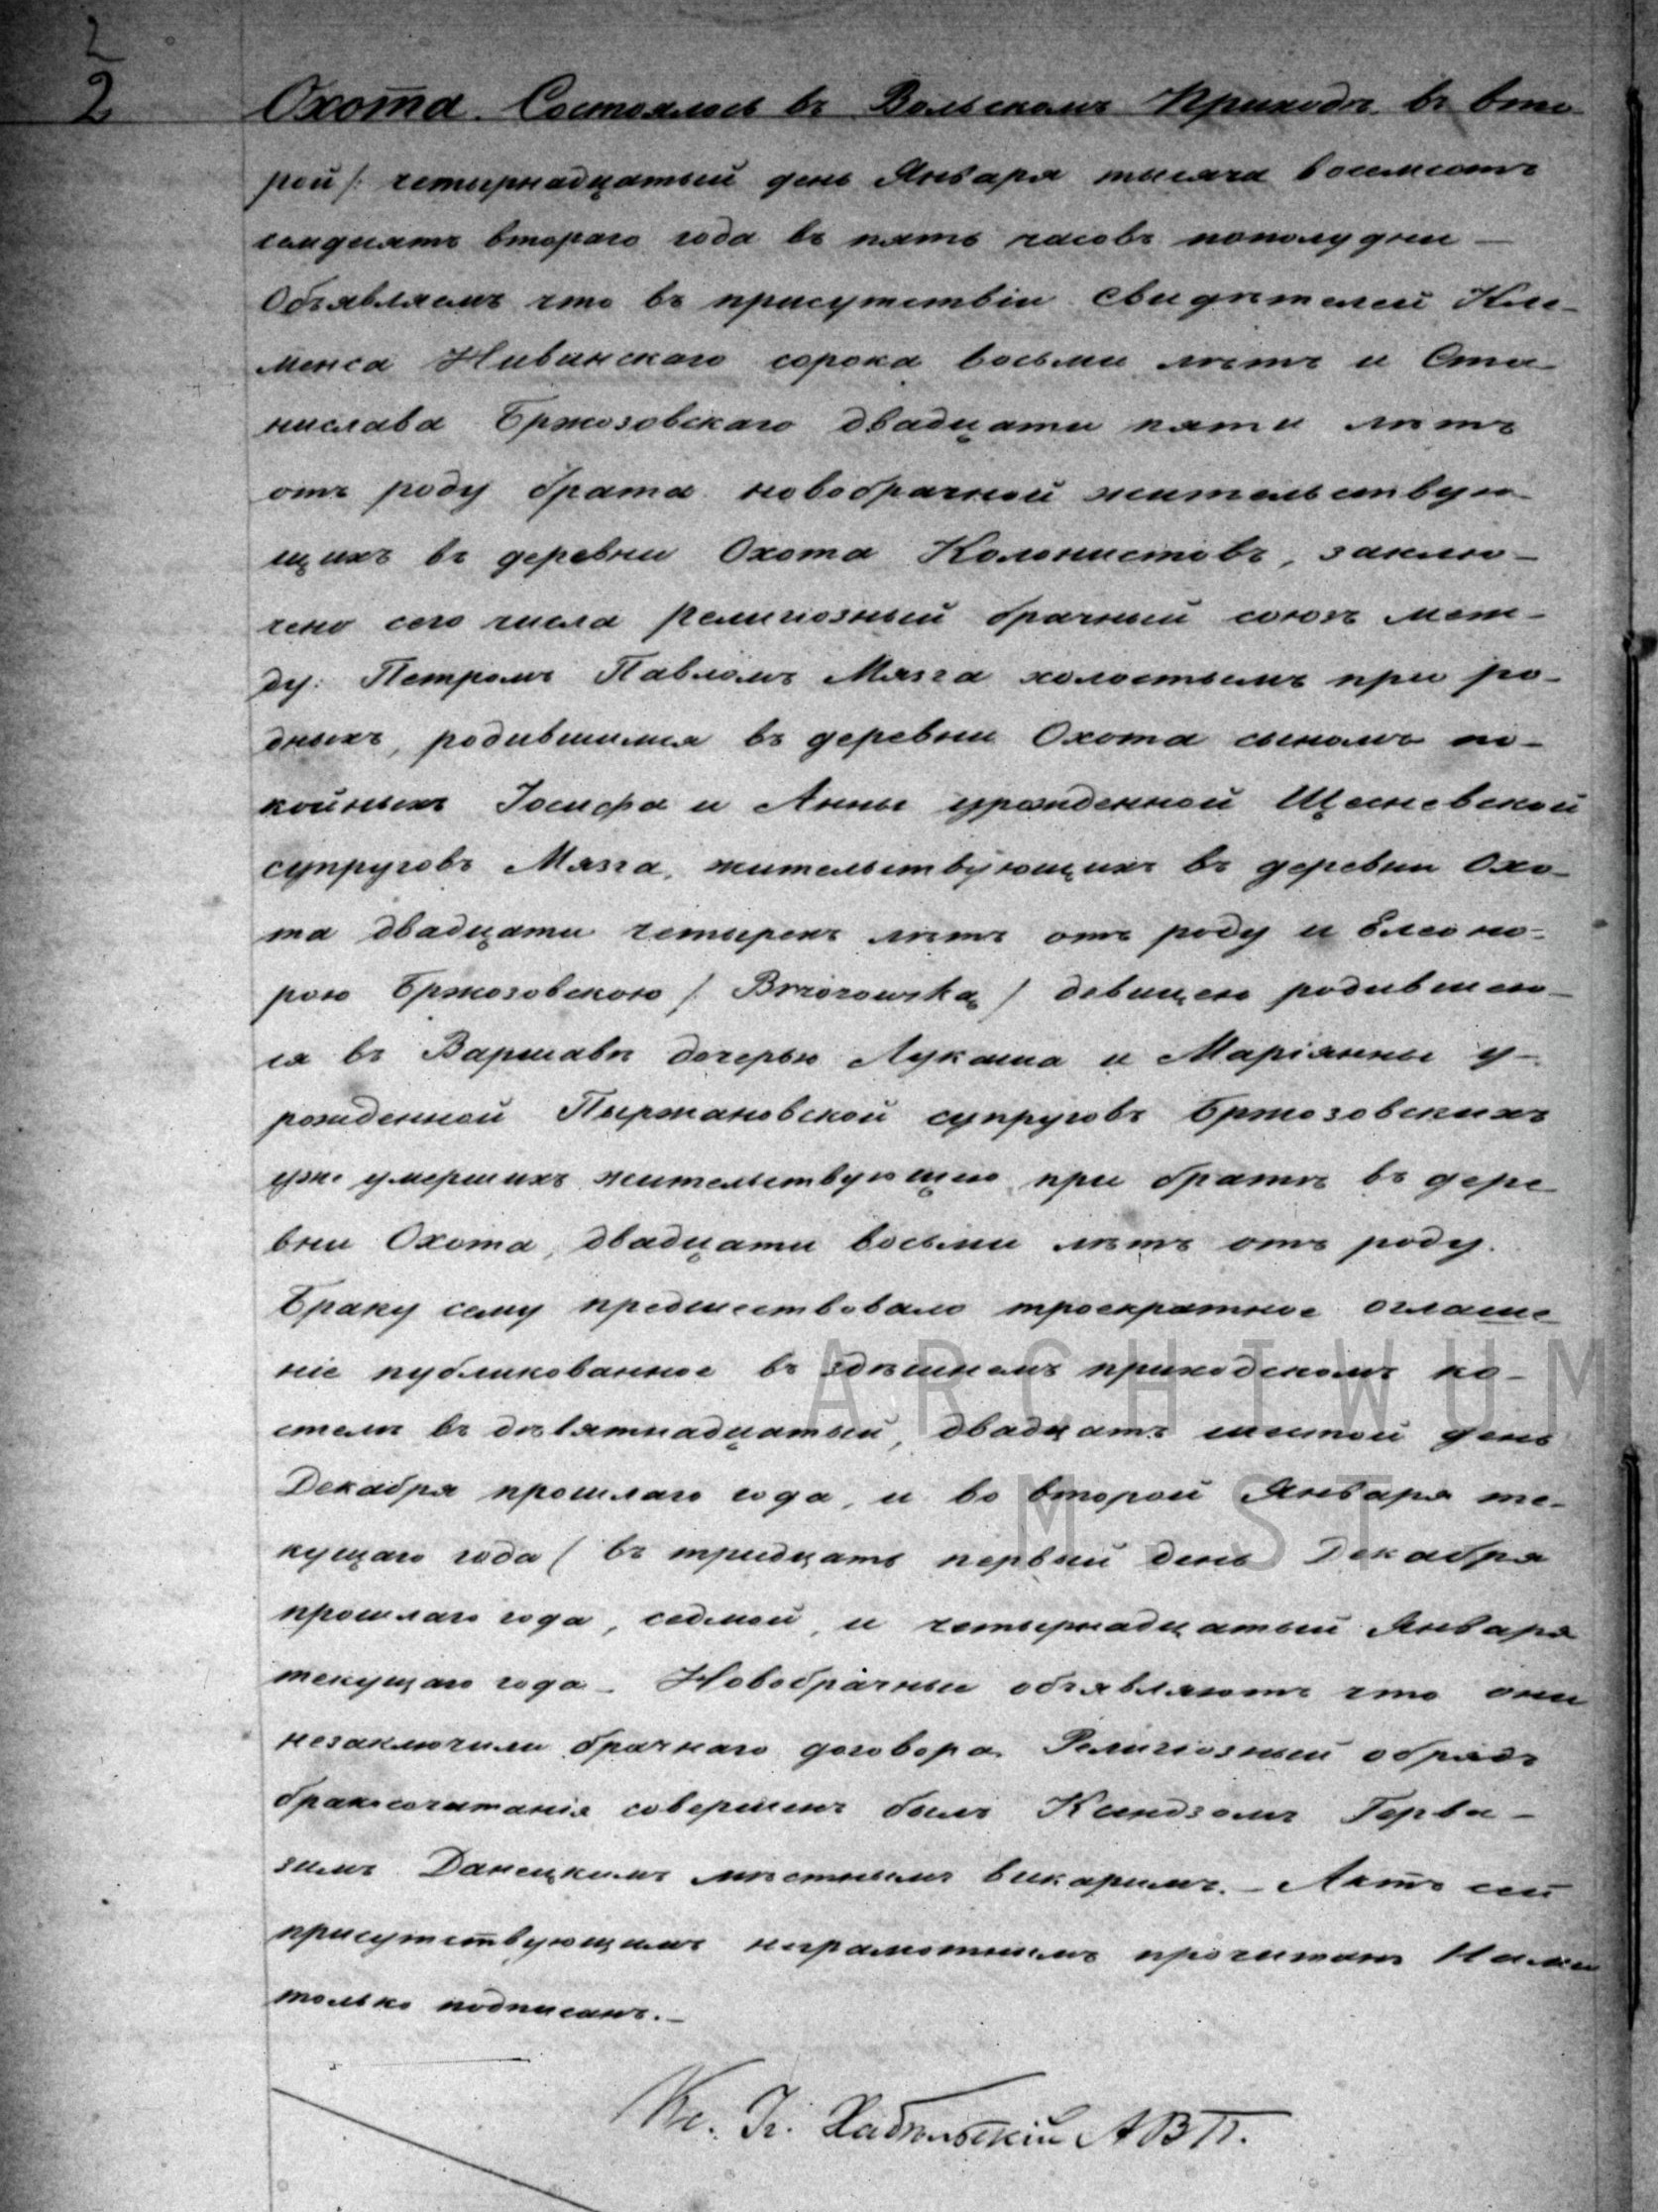 2
2
Охота. Состоялось въ Вольскомъ Приходѣ въ вто-
рой /: четырнадцатый день Января тысяча восемсотъ
семдесятъ втораго года въ пять часовъ пополудни —
Объявляемъ что въ присутствіи свидѣтелей Кле-
менса Ниванскаго сорока восьми лѣтъ и Ста-
нислава Бржозовскаго двадцати пяти лѣтъ
отъ роду брата новобрачной жительствую-
щихъ въ деревни Охота Колонистовъ, заклю-
чено сего числа религіозный брачный союзъ меж-
ду: Петромъ Павломъ Мязга холостымъ при ро-
дныхъ, родившимся въ деревни Охота сыномъ по-
койныхъ Іосифа и Анны урожденной Щесневской
супруговъ Мязга, жительствующихъ въ деревни Охо-
та двадцати четырехъ лѣтъ отъ роду и Елеоно-
рою Бржозовскою / Brzozowską / девицею родившею-
ся въ Варшавѣ дочерью Лукаша и Маріянны у-
рожденной Пыржановской супруговъ Бржозовскихъ
уже умершихъ жительствующею при братѣ въ дере-
вни Охота, двадцати восьми лѣтъ отъ роду.
Браку сему предшествовало троекратное оглаше-
ніе публикованное въ здѣшнемъ приходскомъ ко-
стелѣ въ девятнадцатый, двадцать шестой день
Декабря прошлаго года, и во второй Января те-
кущаго года ( въ тридцать первый день Декабря
прошлаго года, седмой, и четырнадцатый Января
текущаго года — Новобрачные объявляютъ что они
незаключили брачнаго договора. Религіозный обрядъ
бракосочитанія совершенъ былъ Ксендзомъ Герва-
зимъ Данецкимъ мѣстнымъ викаримъ. — Актъ сей
присутствующимъ неграмотнымъ прочитанъ Нами
только подписанъ. —
Кс. А В П.
ARCHIWUM
M. ST